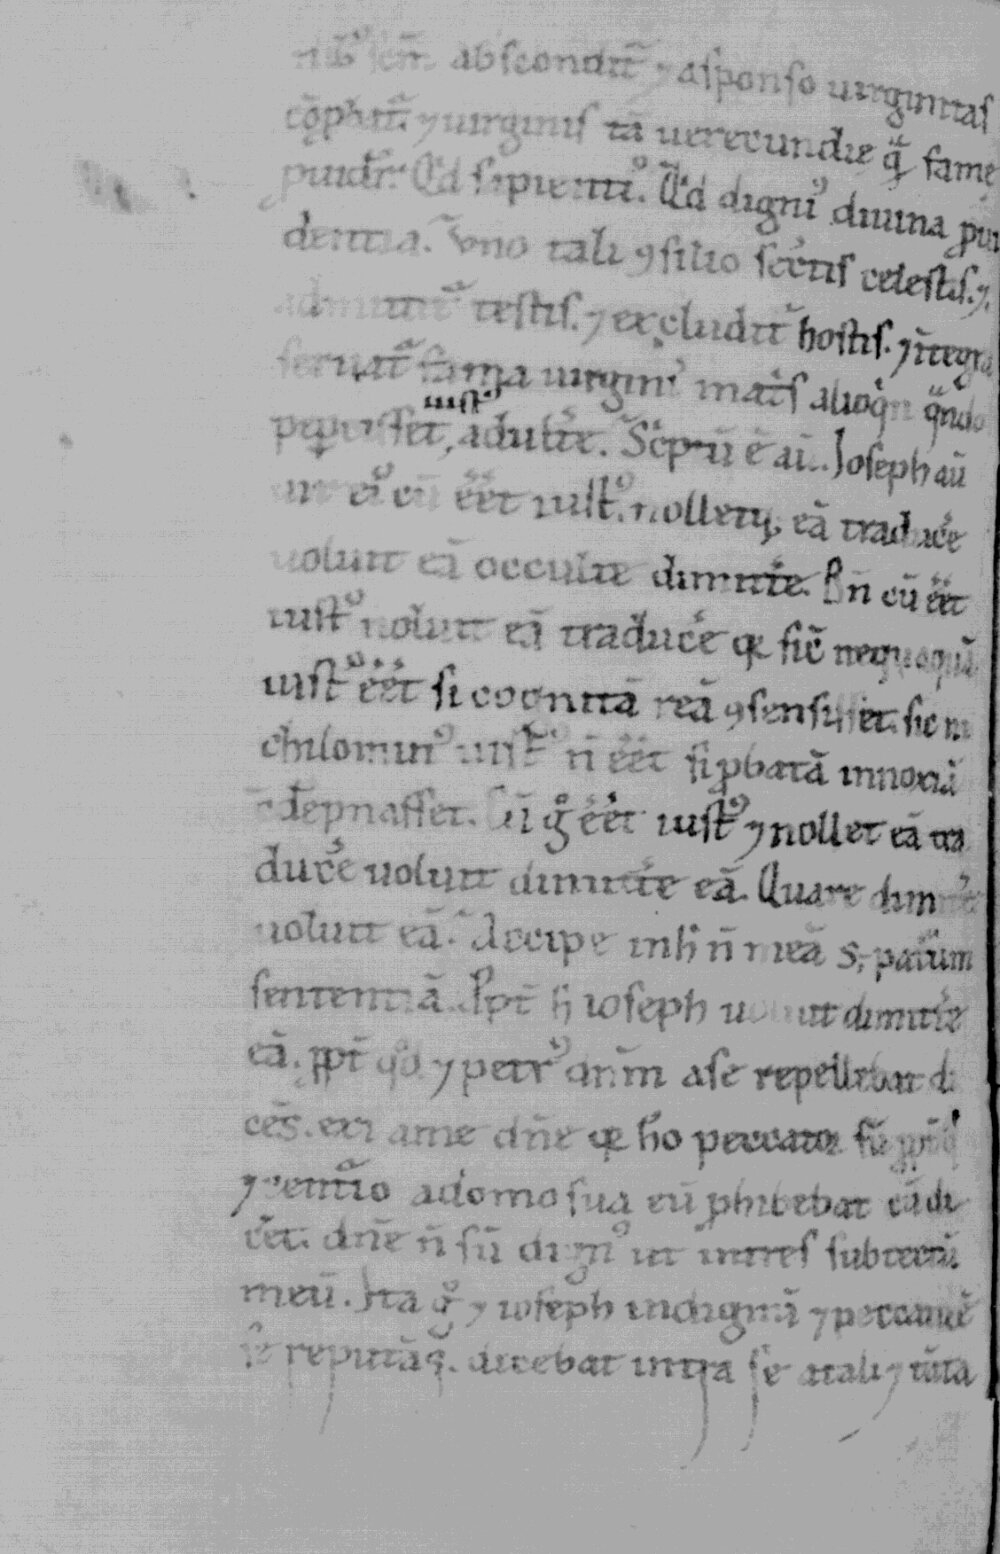 abscondit᷑ ⁊ a sponso uirginitas
cōp̄bat᷑. ⁊ uirginis tā uerecundie q̄ fame
puidet᷑. Qͥd sapientiꝰ. Qͥd digniꝰ diuina ꝓui
dentia. Vno tali ꝯsilio secͥtis celestis. ⁊
admittit᷑ testis. ⁊ excludit᷑ hostis. ⁊ īteg̃
seruat᷑ fama uirginis mat̃s alioqͥn qͣndo
peꝑcisset iustꝰ adult̃e. Scͥptū ē aū. Joseph aū
uir eiꝰ cū eēt iustꝰ. nolletq; eā traduc̃e
uoluit eā occulte dimitt̃e. Bn̄ cū eēt
iustꝰ noluit eā traduc̃e qꝛ sic̄ nequaquā
iustꝰ eēt si cognitā reā ꝯsensisset. sic ni
chilominꝰ iustꝰ n̄ eēt si ꝓbatā innoxiā
ꝯdēpnasset. Cū gͦ eēt iustꝰ ⁊ nollet eā tra
duc̃e uoluit dimitt̃e eā. Quare dimitt̃e
uoluit eā. Accipe in h̄ n̄ meā s; patͣum
sententiā. Ꝓpt̃ h̄ ioseph uoluit dimitt̃e
eā. ꝓpt̃ qͦd ⁊ petrꝰ dn̄m a se repellebat di
cēs. exi a me dn̄e qꝛ hō peccatoꝛ sū ꝓpt̃ qͦd
⁊ centͥio a domo sua eū ꝓhibebat cū di
c̃et. dn̄e n̄ sū dignꝰ ut intres sub tectū
meū. Jta gͦ ⁊ ioseph indignū ⁊ peccatorē
se reputās. dicebat intra se a tali ⁊ tanta